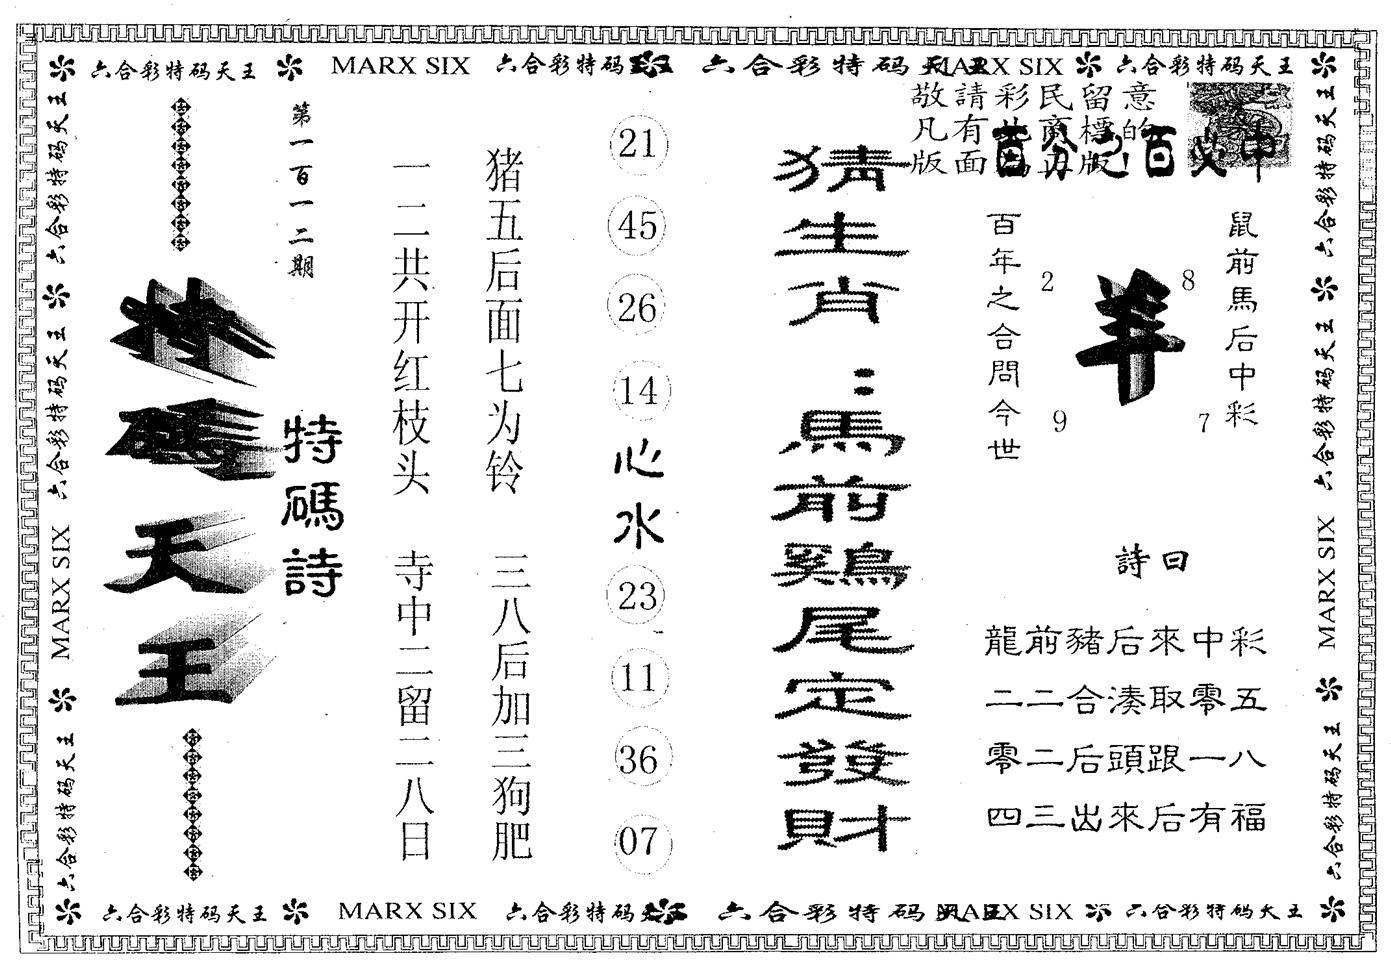 六合彩特码天王 MARX SIX 六合彩特码 六合彩特码天王 MARX SIX 六合彩特码天王
敬請彩民留意
凡有此商標的
版面為正版!
百分之百必中
第一百一二期
特碼天王
特碼詩
一二共开红枝头 寺中二留二八日
猪五后面七为铃 三八后加三狗肥
21
45
26
14
心水
23
11
36
07
猜生肖:馬前鷄尾定發財
百年之合問今世
鼠前馬后中彩
羊
2
8
9
7
詩曰
龍前豬后來中彩
二二合湊取零五
零二后頭跟一八
四三出來后有福
六合彩特码天王
六合彩特码天王
MARX SIX
六合彩特码天王
六合彩特码天王
六合彩特码天王
MARX SIX
六合彩特码天王
六合彩特码天王 MARX SIX 六合彩特码 六合彩特码天王 MARX SIX 六合彩特码天王